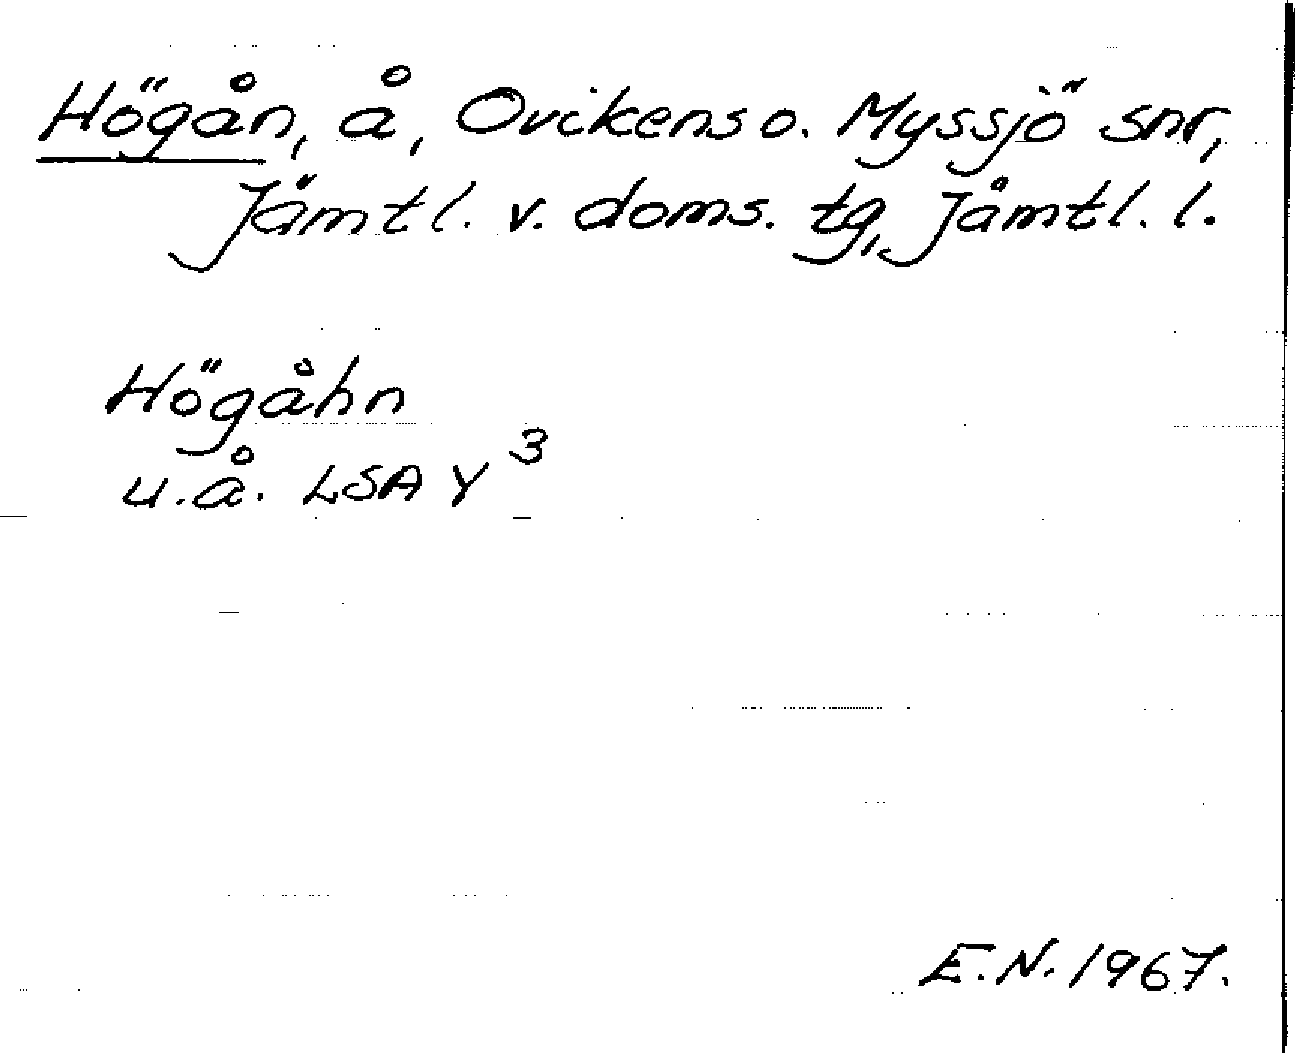 Högån, å, Ovikens o. Myssjö snr,
Jämtl. v. doms. tg, Jämtl. l.
Högåhn
u.å. LSA Y 3
E.N. 1967.